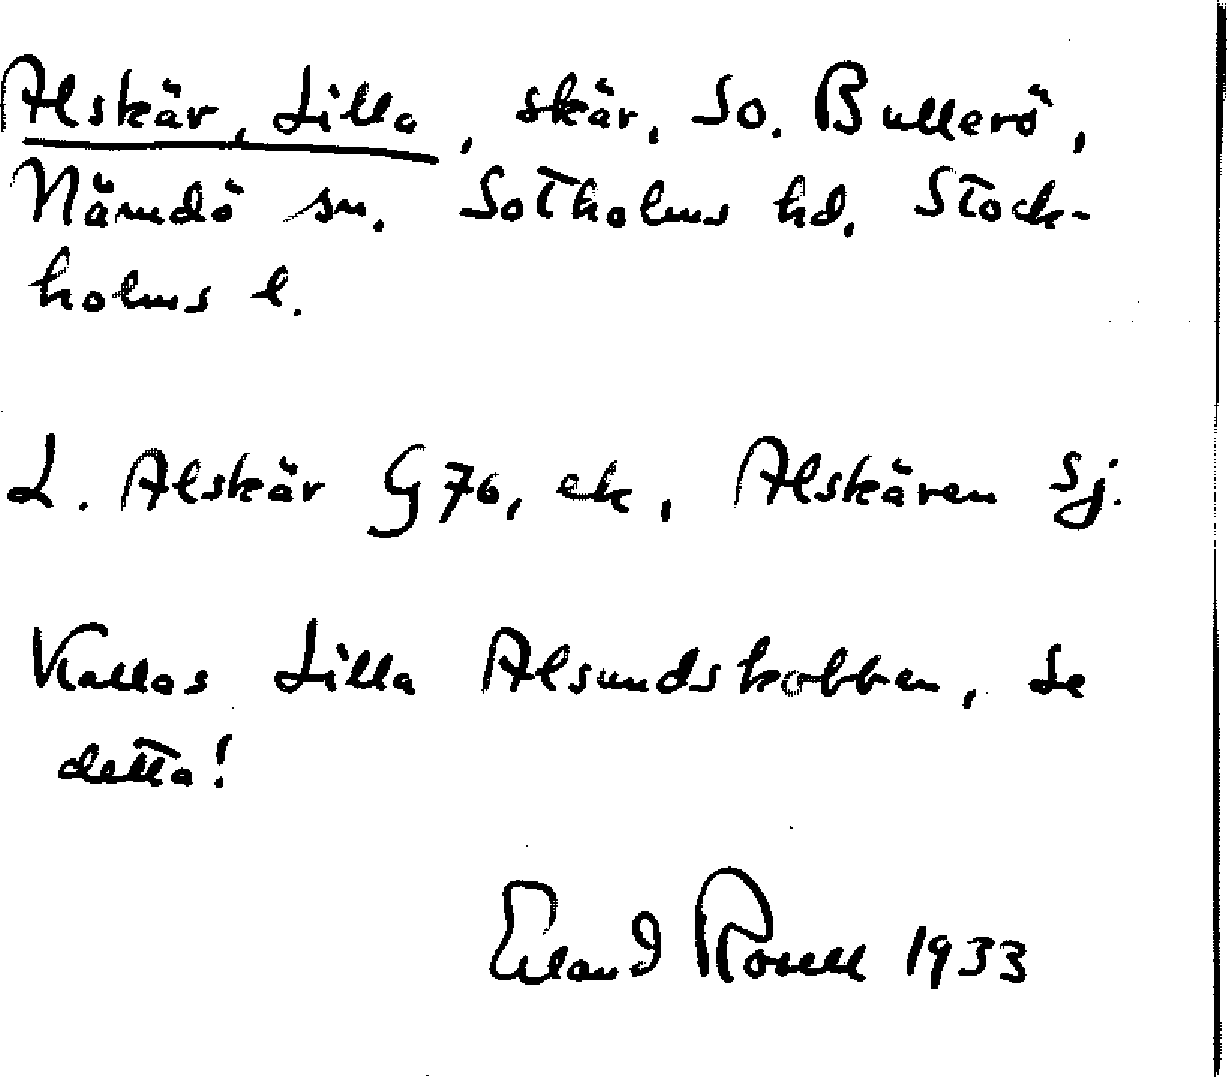 Alskär, Lilla, skär, So. Bullerö,
Nämdö sn. Sotholms hd. Stock-
holms l.
L. Alskär G76, ek, Alskären Sj.
Kallas Lilla Alsundskobben, se
detta!
Erland Rosell 1933